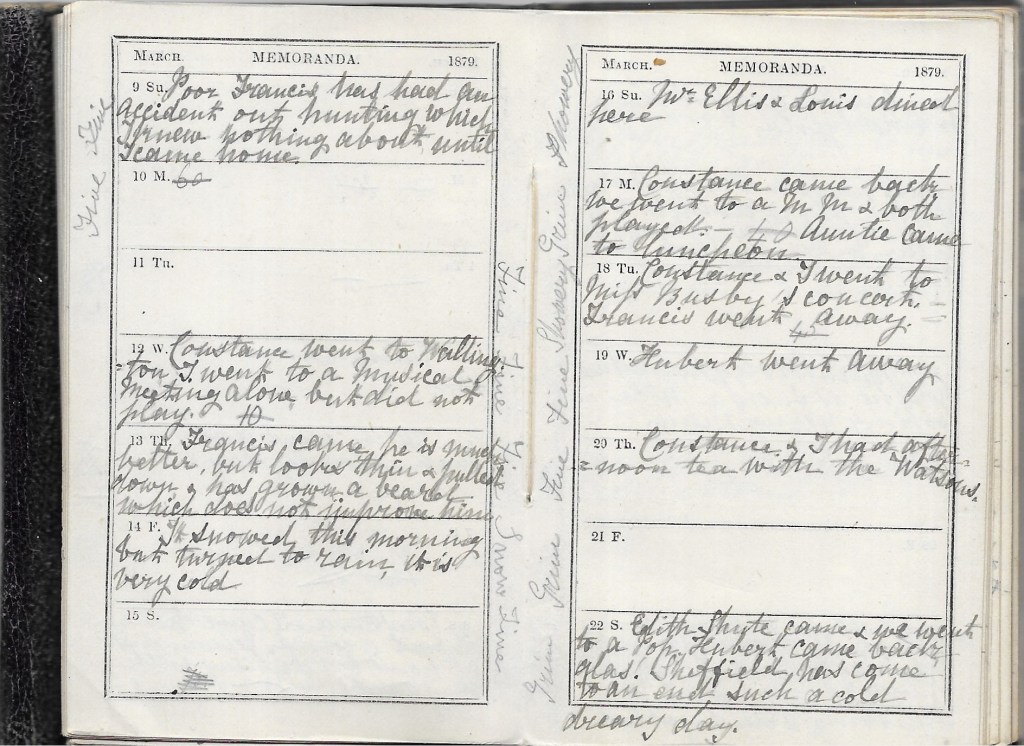 MARCH. MEMORANDA. 1879.
9 Su. Poor Francis has had an
accident out hunting which
I knew nothing about until
I came home.
10 M. 60
11 Tu.
12 W. Constance went to Walling
=ton I went to a Musical
Meeting alone, but did not
play. 10
13 Th. Francis came, he is much
better, but looks thin & pulled
down, & has grown a beard
which does not improve him
14 F. It snowed this morning
but turned to rain, it is
very cold
15 S.
Fine Fine
Fine Fine Fine Snow Fine
MARCH. MEMORANDA. 1879.
16 Su. Mr. Ellis & Louis dined
here
17 M. Constance came back
we went to a M M & both
played. 40 Auntie came
to luncheon
18 Tu. Constance & I went to
Miss Busby's concert.
Francis went away. 45
19 W. Hubert went away
20 Th. Constance & I had after
=noon tea with the Watsons.
21 F.
22 S. Edith Shute came & we went
to a Pop. Hubert came back,
glas! Sheffield has come
to an end such a cold
dreary day.
Fine Fine Fine Showery Fine Showery